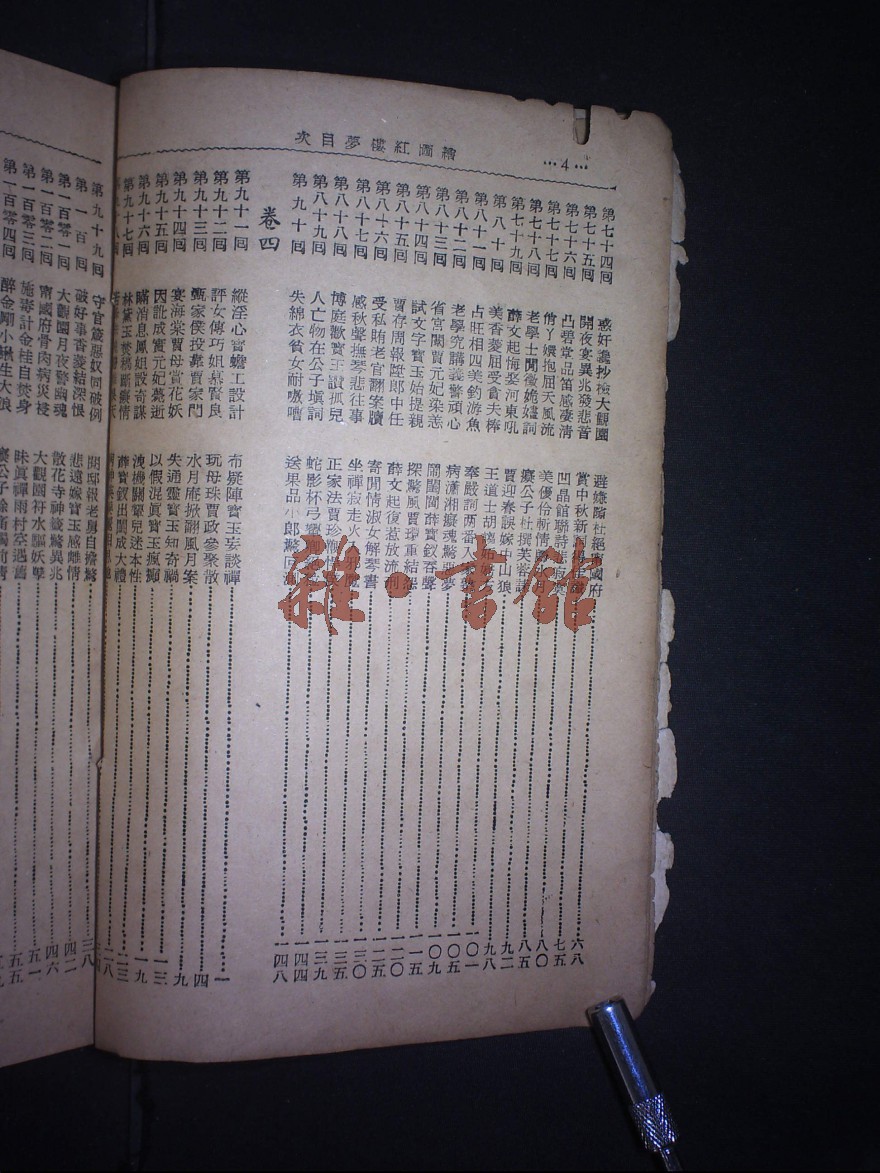 繪圖紅樓夢目次
…4…
第七十四回 惑奸讒抄檢大觀園 避嫌隙杜絕國府 六八
第七十五回 開夜宴異兆發悲音 賞中秋新 七五
第七十六回 凸碧堂品笛感凄清 凹晶館聯詩悲寂寞 八〇
第七十七回 俏丫嬛抱屈夭風流 美優伶斬情月 八五
第七十八回 老學士閒徵姽嫿詞 癡公子杜撰芙蓉誄 九二
第七十九回 薛文起悔娶河東吼 賈迎春誤嫁中山狼 九八
第八十回 美香菱屈受貪夫棒 王道士胡 一〇一
第八十一回 占旺相四美釣游魚 奉嚴詞兩番入家塾 一〇五
第八十二回 老學究講義警頑心 病瀟湘癡魂驚惡夢 一〇九
第八十三回 省宮闈賈元妃染恙 鬧閨閫薛寶釵吞聲 一一五
第八十四回 試文字寶玉始提親 探驚風賈環重結怨 一二〇
第八十五回 賈存周報陞郎中任 薛文起復惹放流刑 一二五
第八十六回 受私賄老官翻案牘 寄閒情淑女解琴書 一三〇
第八十七回 感秋聲撫琴悲往事 坐禪寂走火入邪魔 一三五
第八十八回 博庭歡寶玉讚孤兒 正家法賈珍鞭悍僕 一三九
第八十九回 人亡物在公子填詞 蛇影杯弓 一四四
第九十回 失綿衣貧女耐嗷嘈 送果品小郎驚叵測 一四八
卷四
第九十一回 縱淫心寶蟾工設計 布疑陣寶玉妄談禪 一
第九十二回 評女傳巧姐慕賢良 玩母珠賈政參聚散 四
第九十三回 甄家僕投靠賈家門 水月庵掀翻風月案 九
第九十四回 宴海棠賈母賞花妖 失通靈寶玉知奇禍 一三
第九十五回 因訛成實元妃薨逝 以假混眞寶玉瘋癲 一九
第九十六回 瞞消息鳳姐設奇謀 洩機關顰兒迷本性 二三
第九十七回 林黛玉焚稿斷癡情 薛寶釵出閨成大禮 二八
第九十八回
第九十九回 守官箴惡奴同破例 閱邸報老舅自擔驚 三八
第一百回 破好事香菱結深恨 悲遠嫁寶玉感離情 四二
第一百零一回 大觀園月夜警幽魂 散花寺神籤驚異兆 四六
第一百零二回 甯國府骨肉病災祲 大觀園符水驅妖孽 五一
第一百零三回 施毒計金桂自焚身 昧眞禪雨村空遇舊 五五
第一百零四回 醉金剛小鰍生大浪 癡公子餘痛觸前情
雜·書館